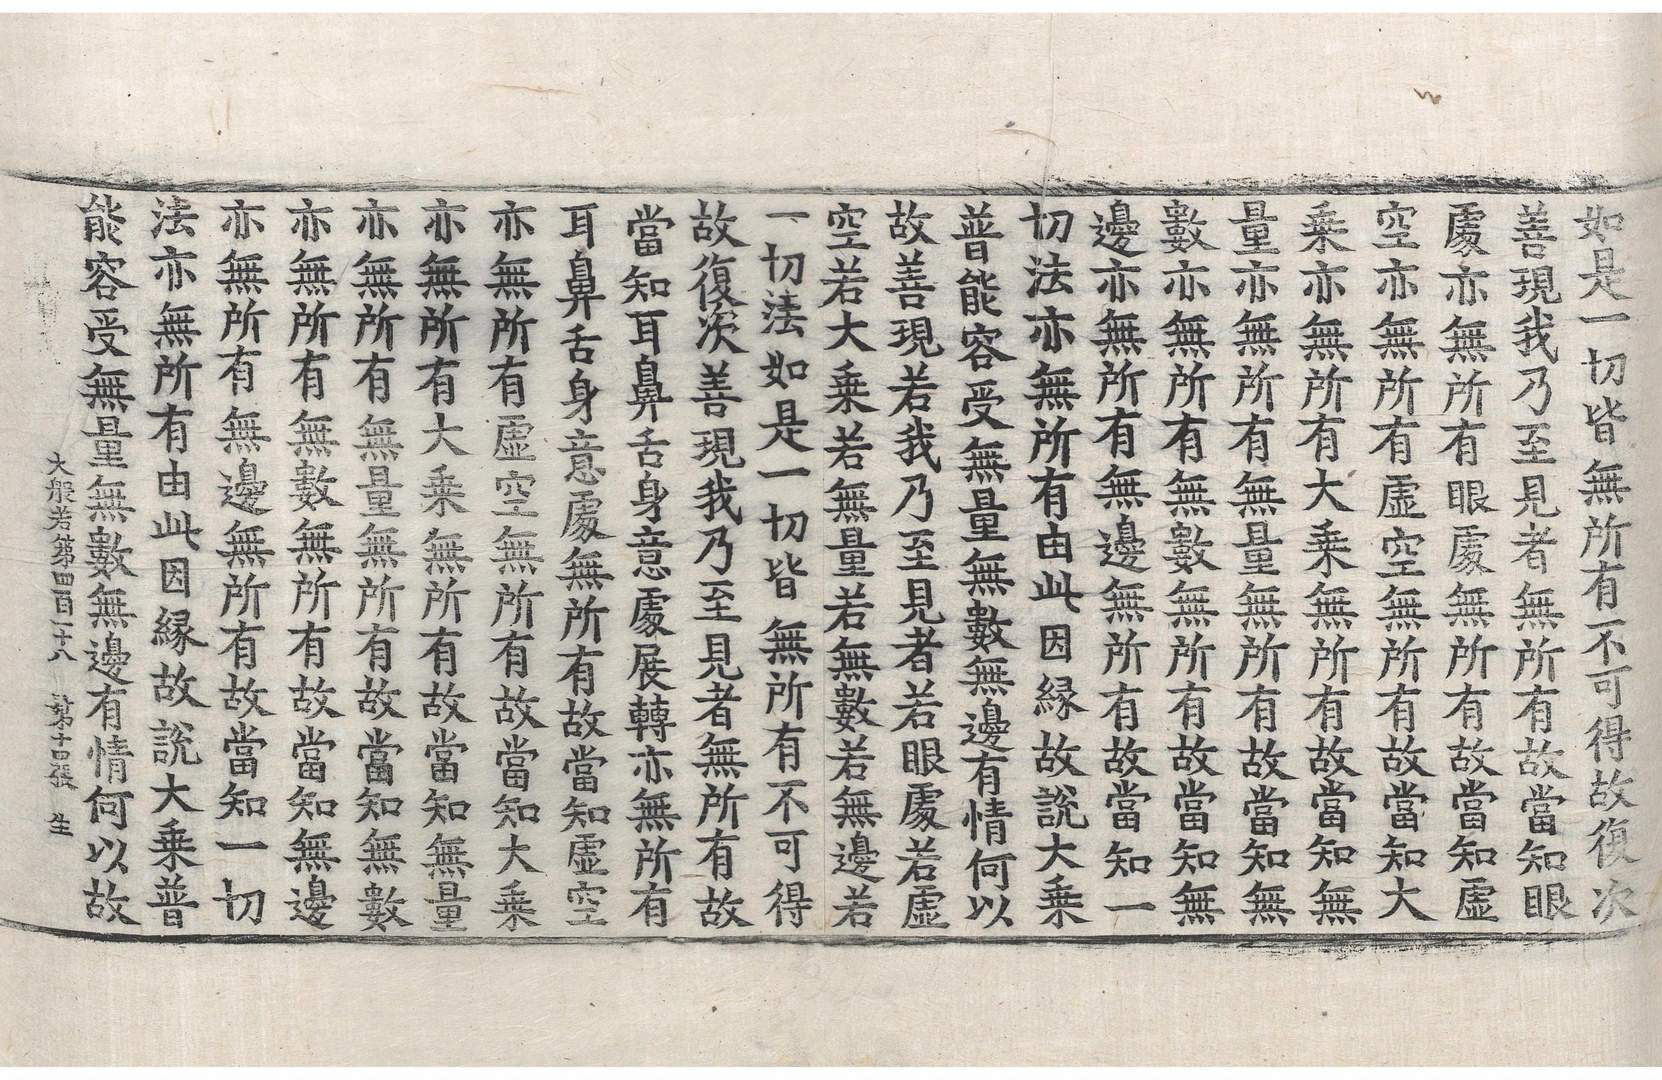 如是一切皆無所有不可得故復次
善現我乃至見者無所有故當知眼
處亦無所有眼處無所有故當知虛
空亦無所有虛空無所有故當知大
乗亦無所有大乗無所有故當知無
量亦無所有無量無所有故當知無
數亦無所有無數無所有故當知無
邊亦無所有無邊無所有故當知一
切法亦無所有由此因縁故說大乗
普能容受無量無數無邊有情何以
故善現若我乃至見者若眼處若虛
空若大乗若無量若無數若無邊若
一切法如是一切皆無所有不可得
故復次善現我乃至見者無所有故
當知耳鼻舌身意處展轉亦無所有
耳鼻舌身意處無所有故當知虛空
亦無所有虛空無所有故當知大乗
亦無所有大乗無所有故當知無量
亦無所有無量無所有故當知無數
亦無所有無數無所有故當知無邊
亦無所有無邊無所有故當知一切
法亦無所有由此因縁故說大乗普
能容受無量無數無邊有情何以故
大般若第四百一十八 第十四張 生